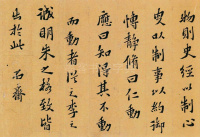 物則經以制心
史以制事以約御
博靜脩曰仁動
應曰知得其不動
而動者從之李之
誠明朱之格致皆
出於此 石齋